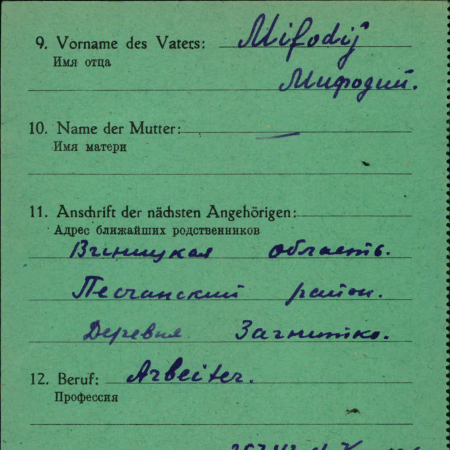 9. Vorname des Vaters: Mifodij
Имя отца
Мифодий.
10. Name der Mutter: —
Имя матери
11. Anschrift der nächsten Angehörigen:
Адрес ближайших родственников
Виницкая область.
Песчанский район.
Деревня Загнитко.
12. Beruf: Arbeiter.
Профессия